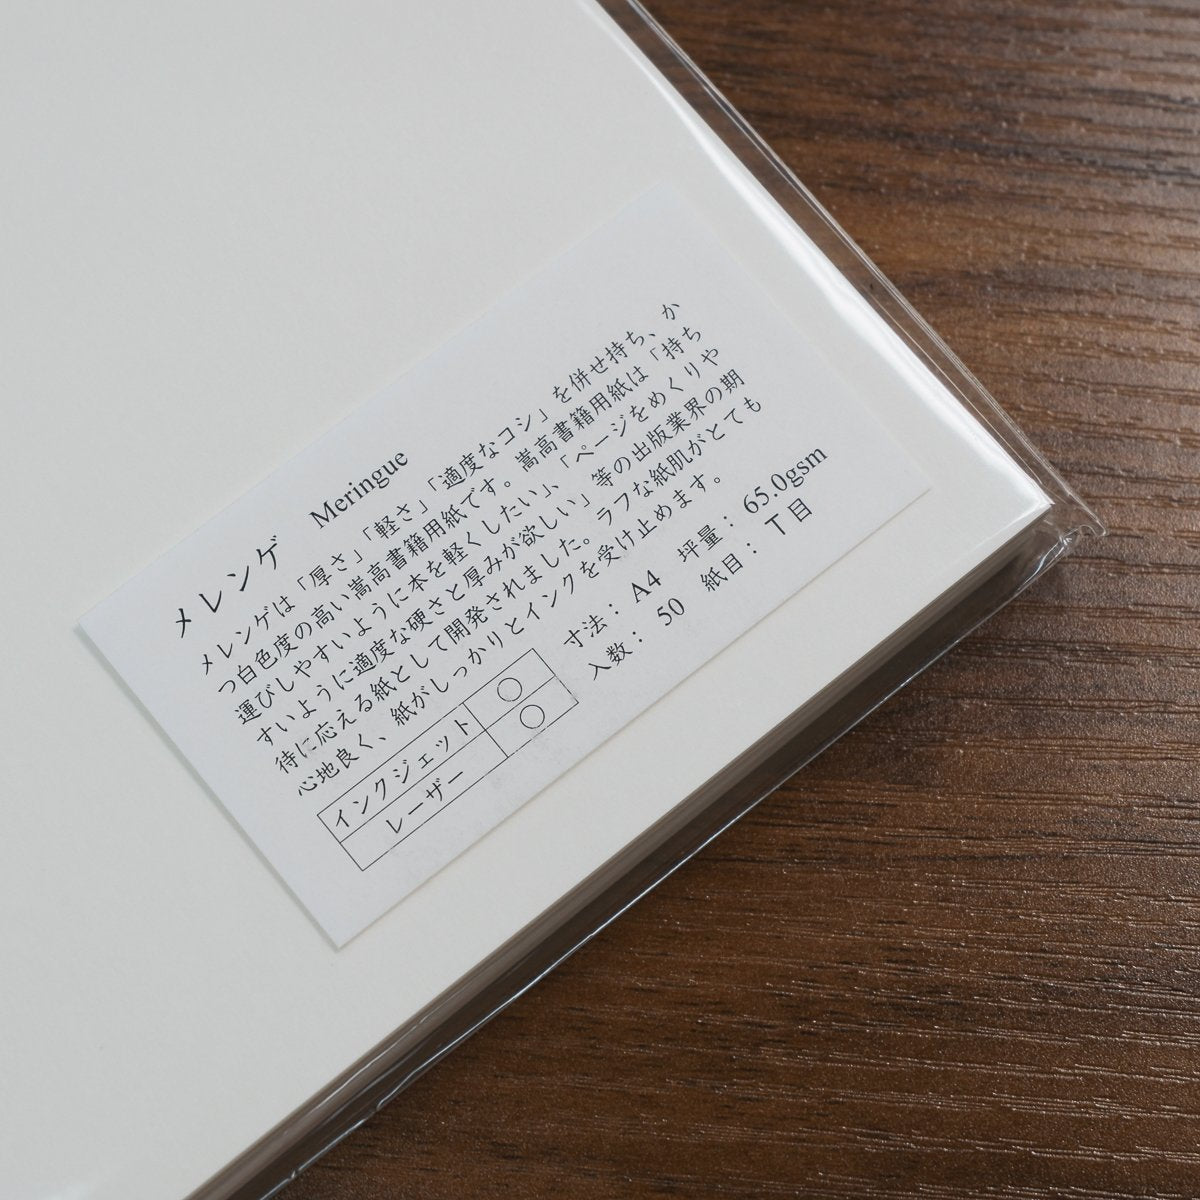 メレンゲ　Meringue
メレンゲは「厚さ」「軽さ」「適度なコシ」を併せ持ち、か
つ白色度の高い嵩高書籍用紙です。嵩高書籍用紙は「持ち
運びしやすいように本を軽くしたい」、「ページをめくりや
すいように適度な硬さと厚みが欲しい」等の出版業界の期
待に応える紙として開発されました。ラフな紙肌がとても
心地良く、紙がしっかりとインクを受け止めます。
インクジェット ○
レーザー ○
寸法：A4　坪量：65.0gsm
入数：50　紙目：T目